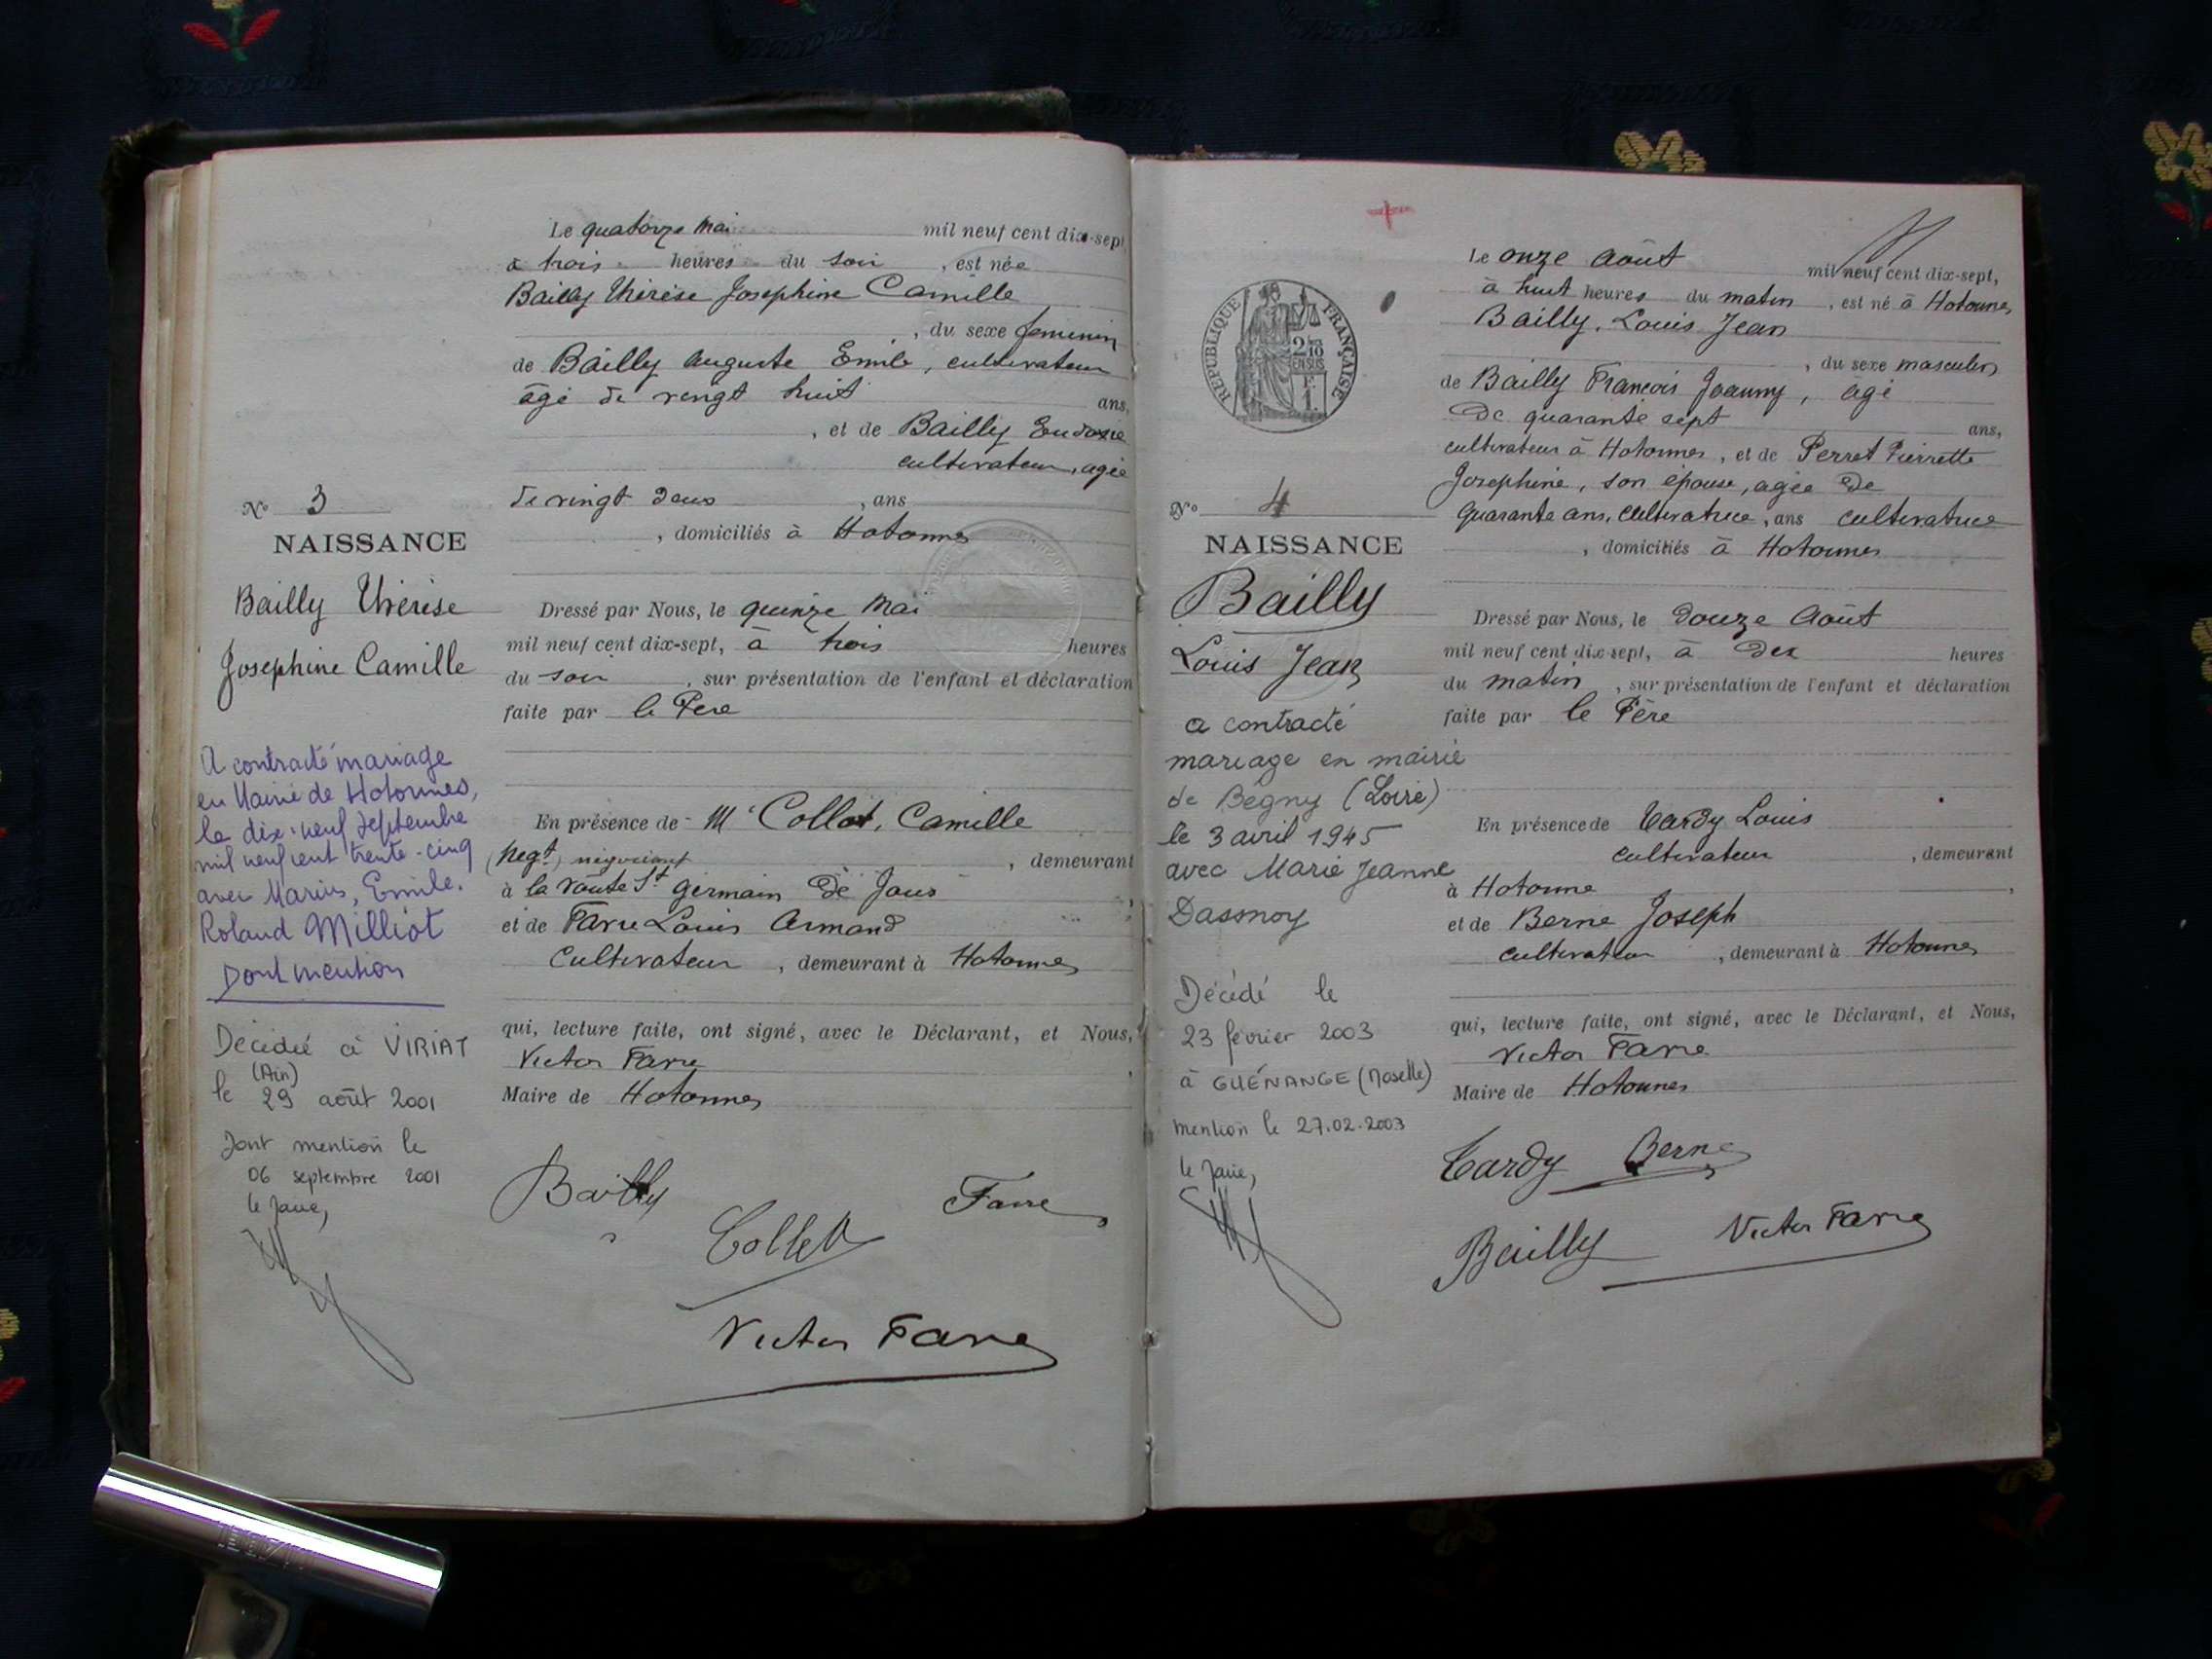 Le quatorze Mai mil neuf cent dix-sept
à trois heures du soir , est née
Bailly Thérèse Josephine Camille
, du sexe feminin
de Bailly Auguste Emile, cultivateur
âgé de vingt huit ans,
, et de Bailly Eudoxie
cultivateur, agée
de vingt deux , ans
, domiciliés à Hotonnes
N° 3
NAISSANCE
Bailly Thérèse
Josephine Camille
Dressé par Nous, le quinze Mai
mil neuf cent dix-sept, à trois heures
du soir , sur présentation de l'enfant et déclaration
faite par le Pere
A contracté mariage
en Mairie de Hotonnes,
le dix-neuf septembre
mil neuf cent trente-cinq
avec Marius, Emile.
Roland Milliot
Dont mention
Décédée à VIRIAT
(Ain)
le 29 août 2001
Dont mention le
06 septembre 2001
le Maire,
En présence de M Collet, Camille
(Negt) négociant , demeurant
à la route St germain De Joux
et de Favre Louis Armand
Cultivateur , demeurant à Hotonnes
qui, lecture faite, ont signé, avec le Déclarant, et Nous,
Victor Favre
Maire de Hotonnes
Bailly
Favre
Collet
Victor Favre
RÉPUBLIQUE FRANÇAISE
2/10
EN SUS
F.
1.
N° 4
NAISSANCE
Bailly
Louis Jean
a contracté
mariage en mairie
de Bégny (Loire)
le 3 avril 1945
avec Marie Jeanne
Dassnoy
Décédé le
23 février 2003
à GUÉNANGE (Moselle)
mention le 27.02.2003
le Maire,
Le onze Août mil neuf cent dix-sept,
à huit heures du matin , est né à Hotonnes
Bailly, Louis Jean
, du sexe masculin
de Bailly François Joanny, âgé
De quarante sept ans,
cultivateur à Hotonnes, et de Perret Pierrette
Josephine, son épouse, agée De
quarante ans, cultivatrice, ans cultivatrice
, domiciliés à Hotonnes
Dressé par Nous, le Douze Août
mil neuf cent dix-sept, à Dix heures
du matin , sur présentation de l'enfant et déclaration
faite par le Père
En présence de Tardy Louis
cultivateur , demeurant
à Hotonne ,
et de Berne Joseph
cultivateur , demeurant à Hotonnes
qui, lecture faite, ont signé, avec le Déclarant, et Nous,
Victor Favre
Maire de Hotonnes
Tardy Berne
Bailly Victor Favre